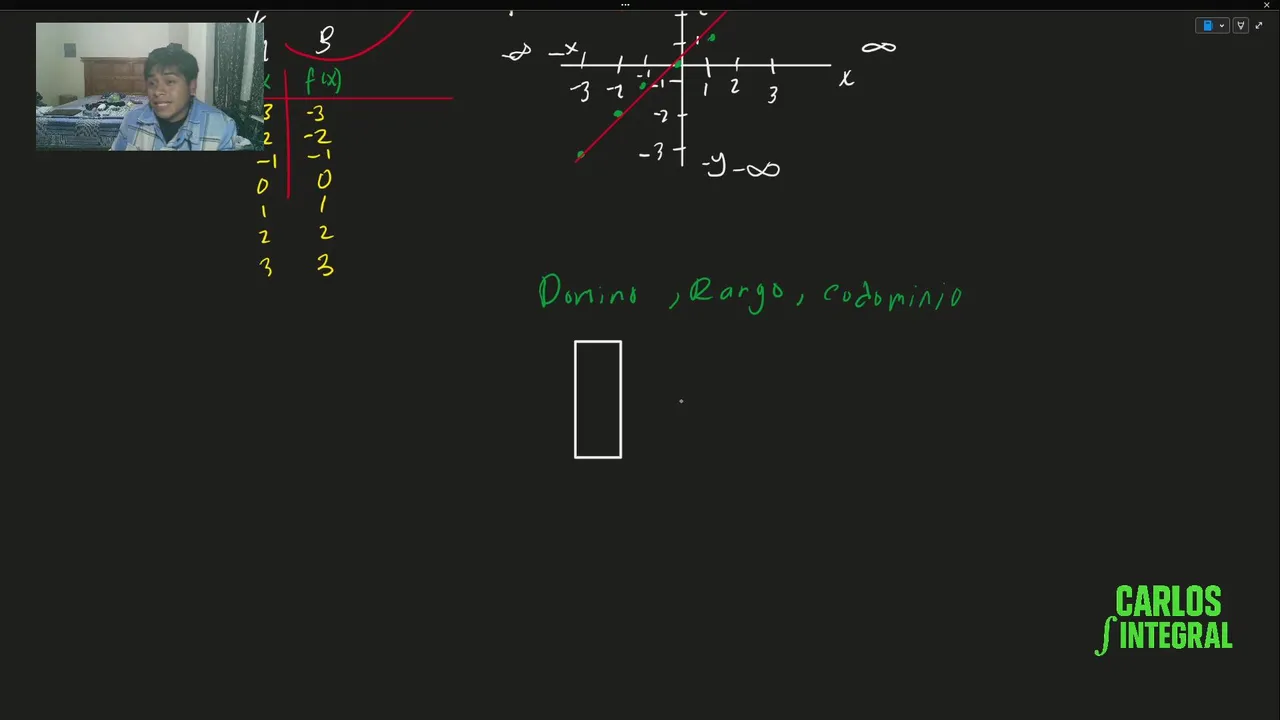 B
x f(x)
3 -3
2 -2
-1 -1
0 0
1 1
2 2
3 3
1
-∞ -x -3 -2 -1 1 2 3 x ∞
-1
-2
-3
-y -∞
Domino , Rango, codominio
CARLOS
∫ INTEGRAL